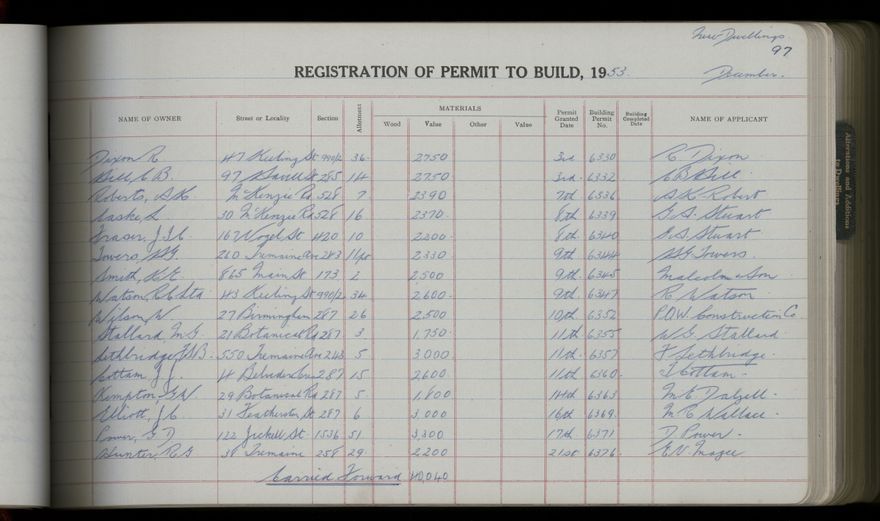 New Dwellings.
97
REGISTRATION OF PERMIT TO BUILD, 1953.
December.
NAME OF OWNER Street or Locality Section Allotment MATERIALS Wood Value Other Value Permit Granted Date Building Permit No. Building Completed Date NAME OF APPLICANT
Dixon R. 47 Keeling St 990/2 36. 2750 3rd 6330 R. Dixon
Bell, C.B. 97 Savill St 285 14 2750. 3rd. 6332 C B Bell.
Roberts, S.K. 7 McKenzie Rd. 528 7. 2390 7th 6336 S.K. Robert
L. 30 McKenzie Rd 528 16 2370. 8th 6339 G.S. Stuart
Fraser, J.I.C. 167 Vogel St 420 10 2200. 8th 6340 G.S Stuart
Towers, 260 Tremaine Av 243 2330 9th 6344 Towers.
Smith, K.E. 865 Main St. 173 2 2,500 9th 6345 Malcolm & Son
Watson, R.C. Ltd 43 Keeling St 990/2 34. 2,600. 9th. 6347 R. Watson
Wilson, W. 27 Birmingham 287 26 2,500 10th 6352 P.O.W. Construction Co.
Stallard, M.G. 21 Botanical Rd 287 3. 1,750. 11th 6355 W.G. Stallard
Lethbridge, 550 Tremaine Ave 243 5 3,000 11th. 6357 F Lethbridge.
Cottam, J.J. 14 287 15 2600. 11th 6360. J Cottam.
Kempton, G.W. 29 Botanical Rd 287 5. 1,800 14th 6363 M.E. Dalzell.
Elliott, J.C. 31 Featherston St 287 6 3,000 16th 6369. M C Wallace.
Power, G.D 122 Jickell St. 1536 51 3,300 17th 6371 D Power.
Hunter, R.G 38 Tremaine 258 29. 2200 21st 6376. E.N. Magee
Carried Forward 40,040
Alterations and Additions to Dwellings